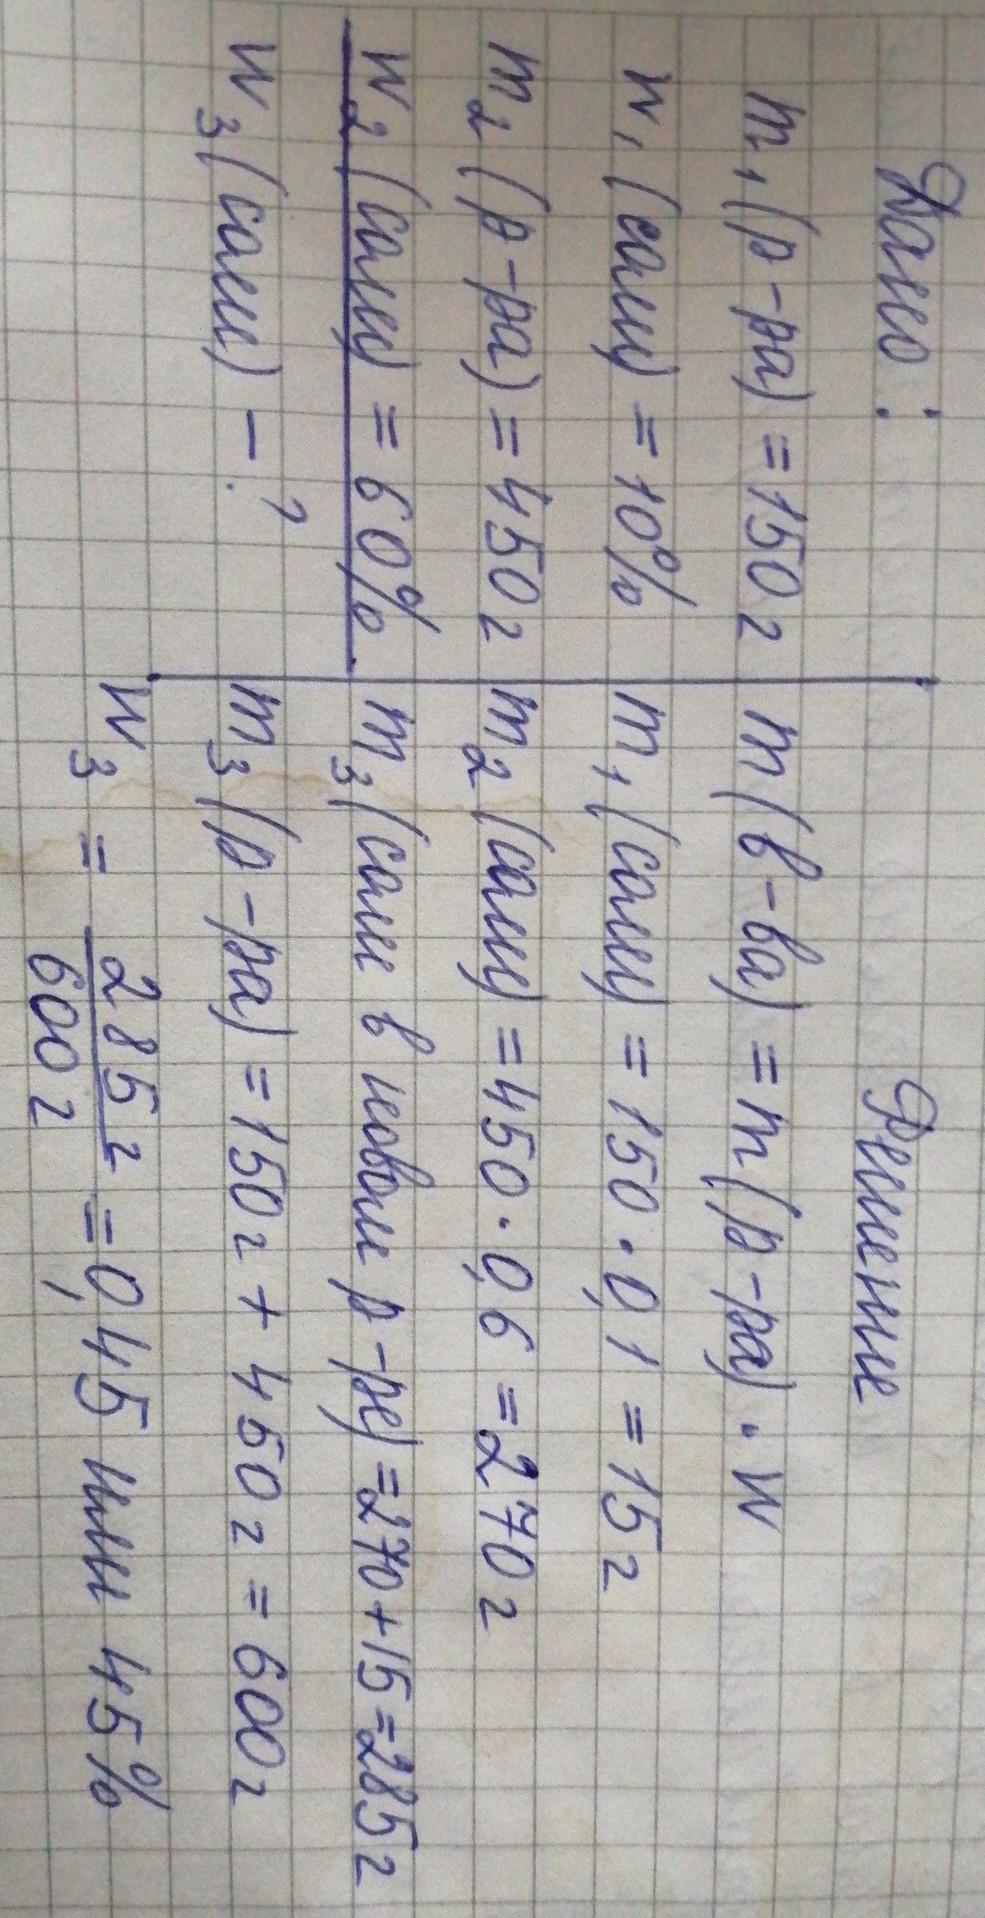 Дано:
m₁(р-ра) = 150 г
w₁(соли) = 10%
m₂(р-ра) = 450 г
w₂(соли) = 60%
w₃(соли) - ?
Решение
m(в-ва) = m(р-ра) · w
m₁(соли) = 150 · 0,1 = 15 г
m₂(соли) = 450 · 0,6 = 270 г
m₃(соли в новом р-ре) = 270 + 15 = 285 г
m₃(р-ра) = 150 г + 450 г = 600 г
w₃ = 285 г / 600 г = 0,45 или 45%